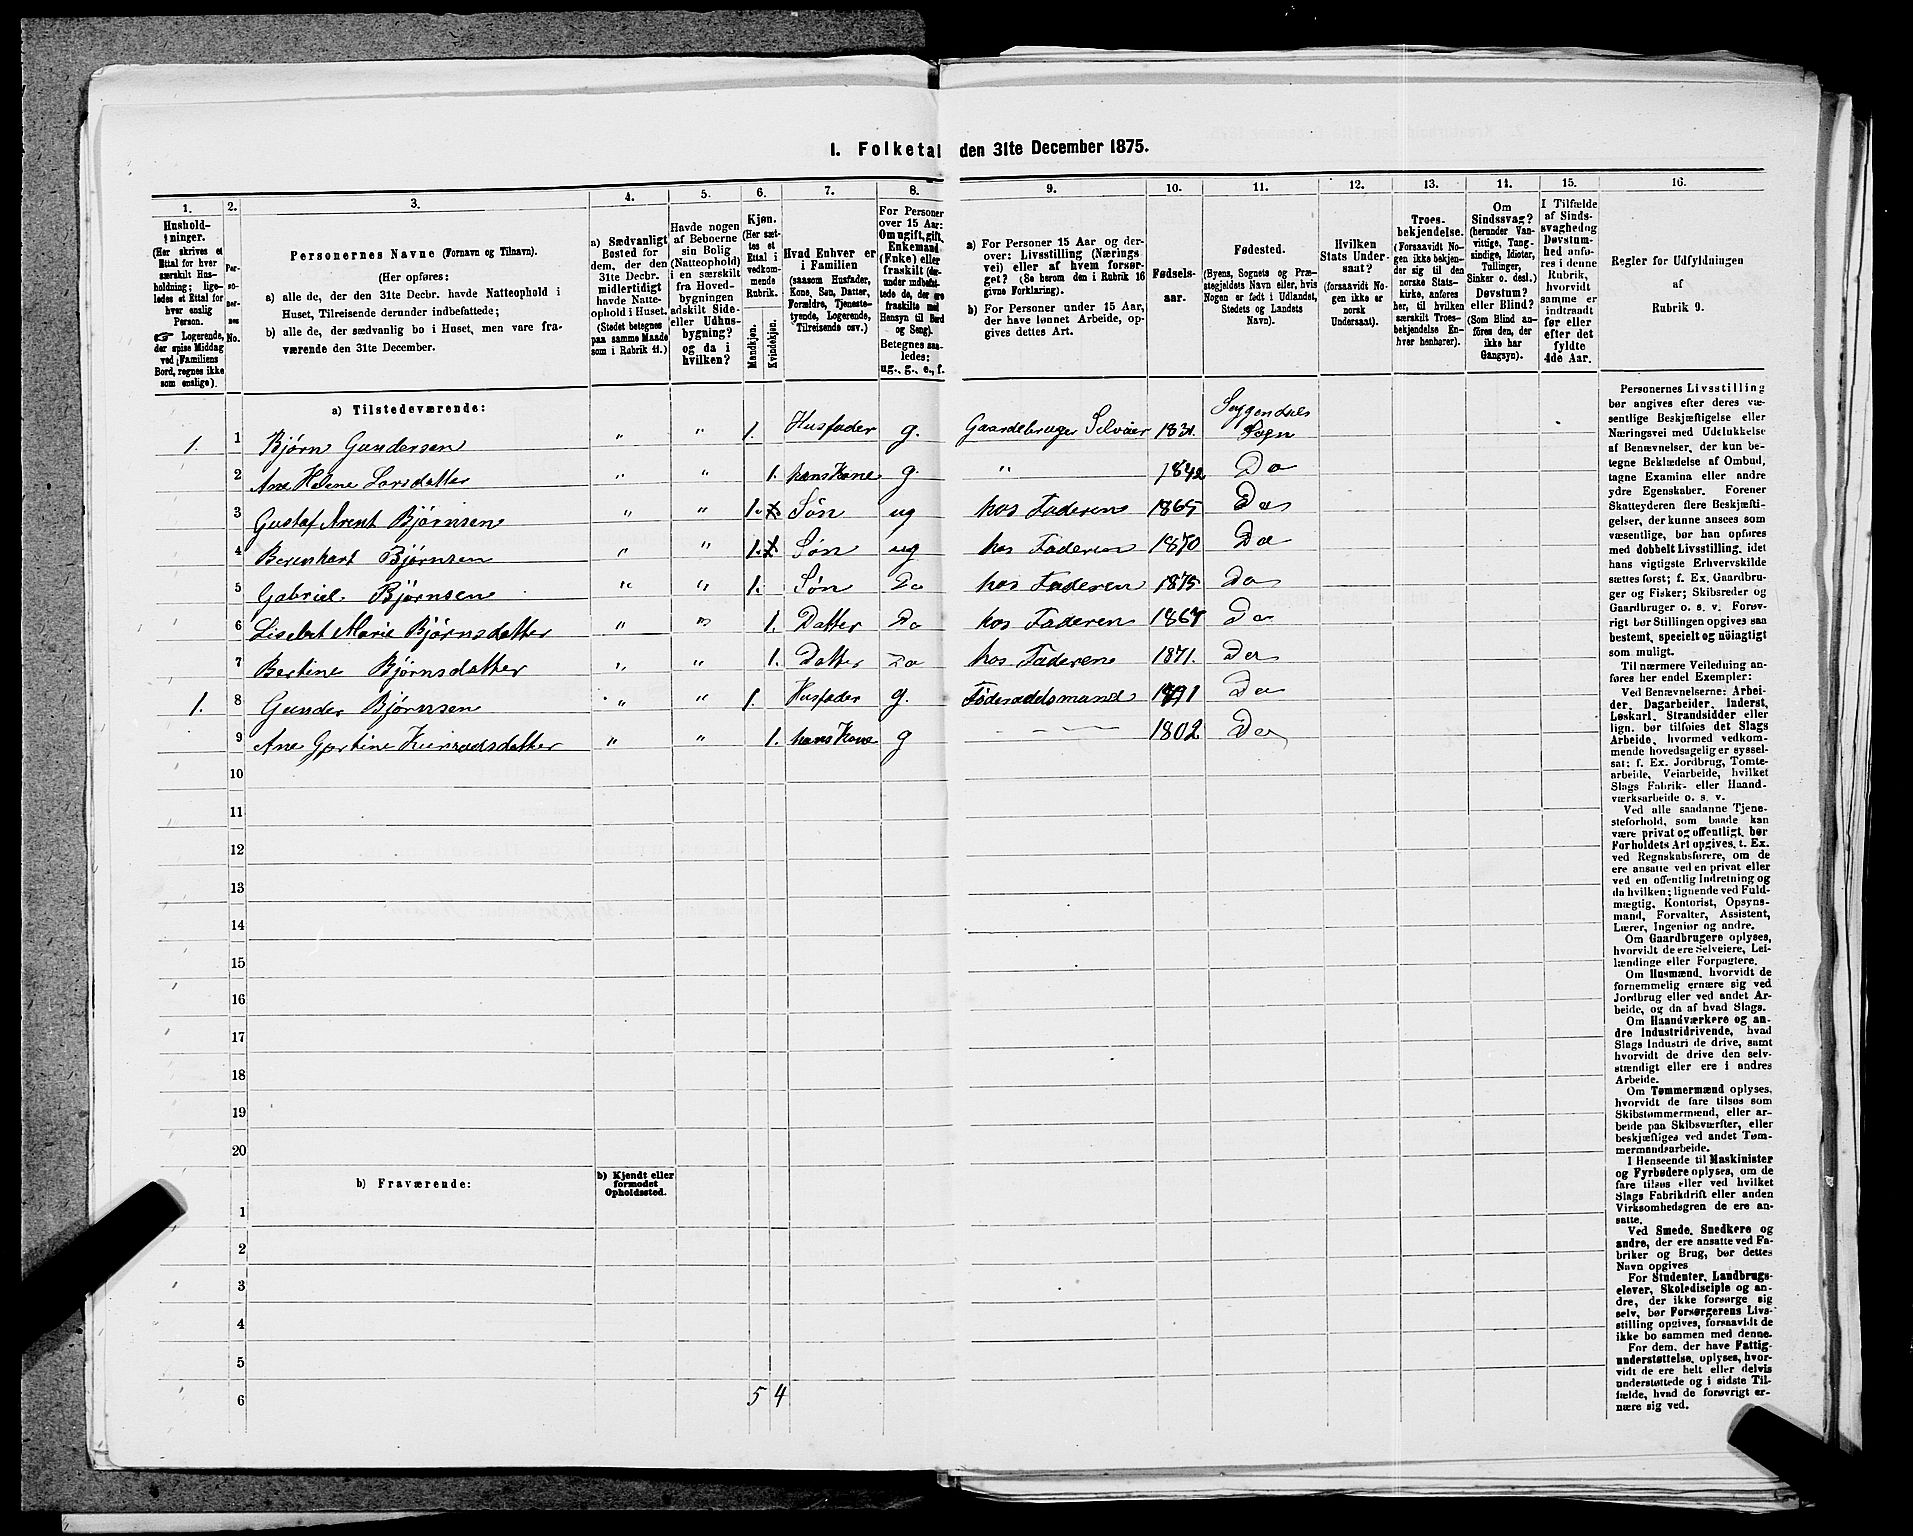 I. Folketal den 31te December 1875.
1. 2. 3. 4. 5. 6. 7. 8. 9. 10. 11. 12. 13. 14. 15. 16.
Hushold-
ninger.
(Her skrives et
Ettal for hver
særskilt Hus-
holdning; lige-
ledes et Ettal for
hver enslig
Person.
☞ Logerende,
der spise Middag
ved Familiens
Bord, regnes ikke
som enslige).
Per-
so-
ner-
nes
No.
Personernes Navne (Fornavn og Tilnavn).
(Her opføres:
a) alle de, der den 31te Decbr. havde Natteophold i
Huset, Tilreisende derunder indbefattede;
b) alle de, der sædvanlig bo i Huset, men vare fra-
værende den 31te December.
a) Sædvanligt
Bosted for
dem, der den
31te Decbr.
midlertidigt
havde Natte-
ophold i Huset.
(Stedet betegnes
paa samme Maade
som i Rubrik 11.)
Havde nogen
af Beboerne
sin Bolig
(Natteophold)
i en særskilt
fra Hoved-
bygningen
adskilt Side-
eller Udhus-
bygning?
og da i
hvilken?
Kjøn.
(Her sæt-
tes et
Ettal i
vedkom-
mende
Rubrik.
Mandkjøn.
Kvindekjøn.
Hvad Enhver er
i Familien
(saasom Husfader,
Kone, Søn, Datter,
Forældre, Tjeneste-
tyende, Logerende,
Tilreisende osv.)
For Personer
over 15 Aar:
Om ugift, gift,
Enkemand
(Enke) eller
fraskilt (der-
under indbefat-
tede de, der ere
fraskilte med
Hensyn til Bord
og Seng).
Betegnes saa-
ledes:
ug., g., e., f.
a) For Personer 15 Aar og der-
over: Livsstilling (Nærings-
vei) eller af hvem forsør-
get? (Se herom den i Rubrik 16
givne Forklaring).
b) For Personer under 15 Aar,
der have lønnet Arbeide, op-
gives dettes Art.
Fødsels-
aar.
Fødested.
(Byens, Sognets og Præ-
stegjeldets Navn eller, hvis
Nogen er født i Udlandet,
Stedets og Landets
Navn).
Hvilken
Stats Under-
saat?
(forsaavidt No-
gen ikke er
norsk
Undersaat).
Troes-
bekjendelse.
(Forsaavidt No-
gen ikke bekjen-
der sig til den
norske Stats-
kirke, anføres
her, til hvilken
særskilt Troes-
bekjendelse En-
hver henhører).
Om
Sindssvag?
(herunder Van-
vittige, Tung-
sindige, Idioter,
Tullinger,
Sinker o. desl.)
Døvstum?
eller Blind?
(Som Blind an-
føres den, der
ikke har
Gangsyn).
I Tilfælde
af Sinds-
svaghed og
Døvstum-
hed anfø-
res i denne
Rubrik,
hvorvidt
samme er
indtraadt
før eller
efter det
fyldte
4de Aar.
Regler for Udfyldningen
af
Rubrik 9.
a) Tilstedeværende:
1. 1 Bjørn Gundersen " " 1. Husfader g. Gaardebruger Selveier 1831. Sogn
2 Ane Helene Larsdatter " " 1. hans Kone g " 1842 Do
3 Gustaf Arent Bjørnsen " " 1. Søn ug hos Faderen 1865 Do
4 Berenhart Bjørnsen " " 1. Søn ug hos Faderen 1870 Do
5 Gabriel Bjørnsen " " 1. Søn Do hos Faderen 1875 Do
6 Lisebet Marie Bjørnsdatter " " 1. Datter Do hos Faderen 1867 Do
7 Bertine Bjørnsdatter " " 1. Datter Do hos Faderen 1871. Do
1. 8 Gunder Bjørnsen " " 1. Husfader g. Føderaadsmand Do
9 Ane Gjertine " " 1. hans Kone g — 1802 Do
10
11
12
13
14
15
16
17
18
19
20
b) Fraværende:
b) Kjendt eller
formodet
Opholdssted.
1
2
3
4
5
6 5 4
Personernes Livsstilling
bør angives efter deres væ-
sentlige Beskjæftigelse eller
Næringsvei med Udelukkelse
af Benævnelser, der kun be-
tegne Beklædelse af Ombud,
tagne Examina eller andre
ydre Egenskaber. Forener
Skatteyderen flere Beskjæfti-
gelser, der kunne ansees som
væsentlige, bør han opføres
med dobbelt Livsstilling, idet
hans vigtigste Erhvervskilde
sættes først; f. Ex. Gaardbru-
ger og Fisker; Skibsreder og
Gaardbruger o. s. v. Forøv-
rigt bør Stillingen opgives saa
bestemt, specielt og nøiagtigt
som muligt.
Til nærmere Veiledning an-
føres her endel Exempler:
Ved Benævnelserne: Arbei-
der, Dagarbeider, Inderst,
Løskarl, Strandsidder eller
lign. bør tilføies det Slags
Arbeide, hvormed vedkom-
mende hovedsagelig er syssel-
sat; f. Ex. Jordbrug, Tomte-
arbeide, Veiarbeide, hvilket
Slags Fabrik- eller Haand-
værksarbeide o. s. v.
Ved alle saadanne Tjene-
steforhold, som baade kan
være privat og offentligt, bør
Forholdets Art opgives, t. Ex.
ved Regnskabsførere, om de
ere ansatte ved en privat eller
ved en offentlig Indretning og
da hvilken; lignende ved Fuld-
mægtig, Kontorist, Opsyns-
mand, Forvalter, Assistent,
Lærer, Ingeniør og andre.
Om Gaardbrugere oplyses,
hvorvidt de ere Selveiere, Lei-
lændinge eller Forpagtere.
Om Husmænd, hvorvidt de
fornemmelig ernære sig ved
Jordbrug eller ved andet Ar-
beide, og da af hvad Slags.
Om Haandværkere og an-
dre Industridrivende, hvad
Slags Industri de drive, samt
hvorvidt de drive den selv-
stændigt eller ere i andres
Arbeide.
Om Tømmermænd oplyses,
hvorvidt de fare tilsøs som
Skibstømmermænd, eller ar-
beide paa Skibsværfter, eller
beskjæftiges ved andet Tøm-
mermandsarbeide.
I Henseende til Maskinister
og Fyrbødere oplyses, om de
fare tilsøs eller ved hvilket
Slags Fabrikdrift eller anden
Virksomhedsgren de ere an-
satte.
Ved Smede, Snedkere og
andre, der ere ansatte ved Fa-
briker og Brug, bør dettes
Navn opgives
For Studenter, Landbrugs-
elever, Skoledisciple og an-
dre, der ikke forsørge sig
selv, bør Forsørgerens Livs-
stilling opgives, forsaavidt de
ikke bo sammen med denne.
For dem, der have Fattig-
understøttelse, oplyses, hvor-
vidt de ere helt eller delvis
understøttede og i sidste Til-
fælde, hvad de forøvrigt er-
nære sig ved.